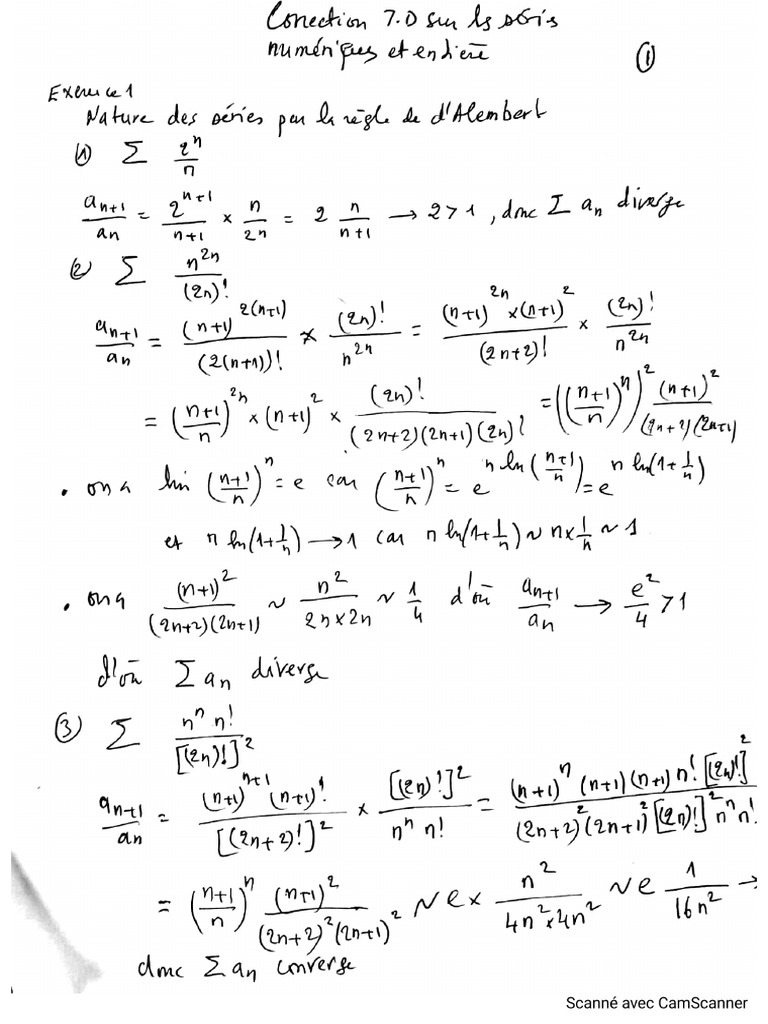 Correction T.D sur les séries
numériques et entière ①
Exercice 1
Nature des séries par la règle de d'Alembert
① Σ 2^n/n
a_{n+1}/a_n = 2^{n+1}/(n+1) × n/2^n = 2 n/(n+1) → 2 > 1, donc Σ a_n diverge
② Σ n^{2n}/(2n)!
a_{n+1}/a_n = (n+1)^{2(n+1)}/(2(n+1))! × (2n)!/n^{2n} = (n+1)^{2n} × (n+1)^2/(2n+2)! × (2n)!/n^{2n}
= ((n+1)/n)^{2n} × (n+1)^2 × (2n)!/((2n+2)(2n+1)(2n)!) = (((n+1)/n)^n)^2 (n+1)^2/((2n+2)(2n+1))
• on a lim ((n+1)/n)^n = e car ((n+1)/n)^n = e^{n ln((n+1)/n)} = e^{n ln(1+1/n)}
et n ln(1+1/n) → 1 car n ln(1+1/n) ~ n×1/n ~ 1
• on a (n+1)^2/((2n+2)(2n+1)) ~ n^2/(2n×2n) ~ 1/4 d'où a_{n+1}/a_n → e^2/4 > 1
d'où Σ a_n diverge
③ Σ n^n n!/[(2n)!]^2
a_{n+1}/a_n = (n+1)^{n+1} (n+1)!/[(2n+2)!]^2 × [(2n)!]^2/(n^n n!) = (n+1)^n (n+1)(n+1) n! [(2n)!]^2/((2n+2)^2 (2n+1)^2 [(2n)!]^2 n^n n!)
= ((n+1)/n)^n (n+1)^2/((2n+2)^2 (2n+1)^2) ~ e × n^2/(4n^2×4n^2) ~ e 1/(16n^2) →
donc Σ a_n converge
Scanné avec CamScanner